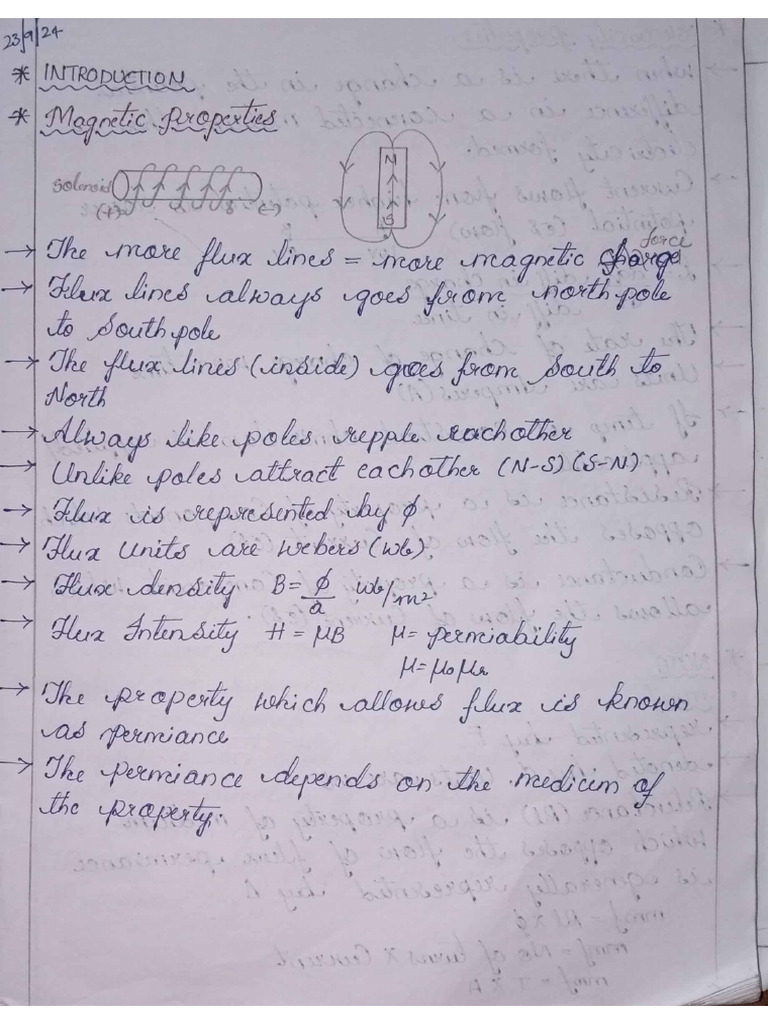 23/9/24
* INTRODUCTION
* Magnetic Properties
solenoid
(+)
(-)
N
S
→ The more flux lines = more magnetic force
→ Flux lines always goes from north pole
to South pole
→ The flux lines (inside) goes from South to
North
→ Always like poles repple each other
→ Unlike poles attract each other (N-S) (S-N)
→ Flux is represented by ϕ
→ Flux Units are webers (wb).
→ Flux density B = ϕ/a wb/m²
→ Flux Intensity H = μB μ = permiability
μ = μ₀μᵣ
→ The property which allows flux is known
as permiance
→ The permiance depends on the medium of
the property.